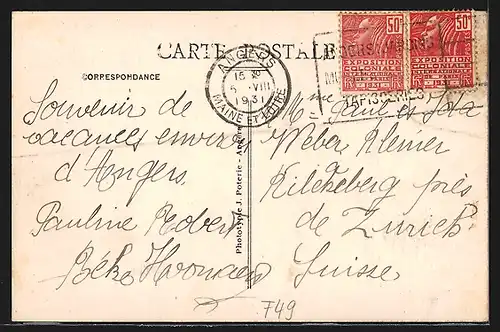 CARTE POSTALE
CORRESPONDANCE
ANGERS
15 H
5 VIII
1931
MAINE ET LOIRE
TAPISSERIES
50c
EXPOSITION
COLONIALE
INTERNATIONALE
PARIS
1931
50c
EXPOSITION
COLONIALE
INTERNATIONALE
PARIS
1931
Souvenir de
vacances environ
d'Angers.
Pauline Robert
Phototypie J. Poterie - Angers
Weber Kleiner
Kilchberg près
de Zurich
Suisse
749